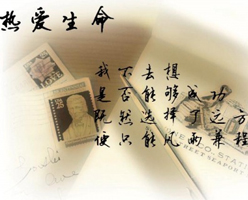 热爱生命
我不去想
是否能够成功
既然选择了远方
便只能风雨兼程
STREET SEAPORT